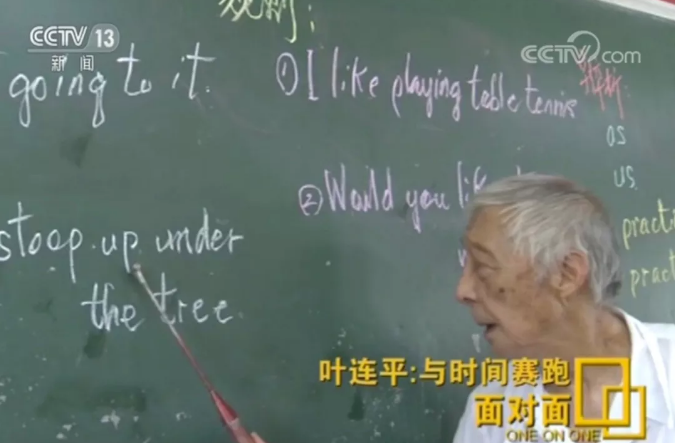 CCTV 13
新闻
规则:
CCTV.com
going to it.
① I like playing table tennis
辨析:
as
us
② Would you like
stoop up under
the tree.
practi
pract
叶连平:与时间赛跑
面对面
ONE ON ONE